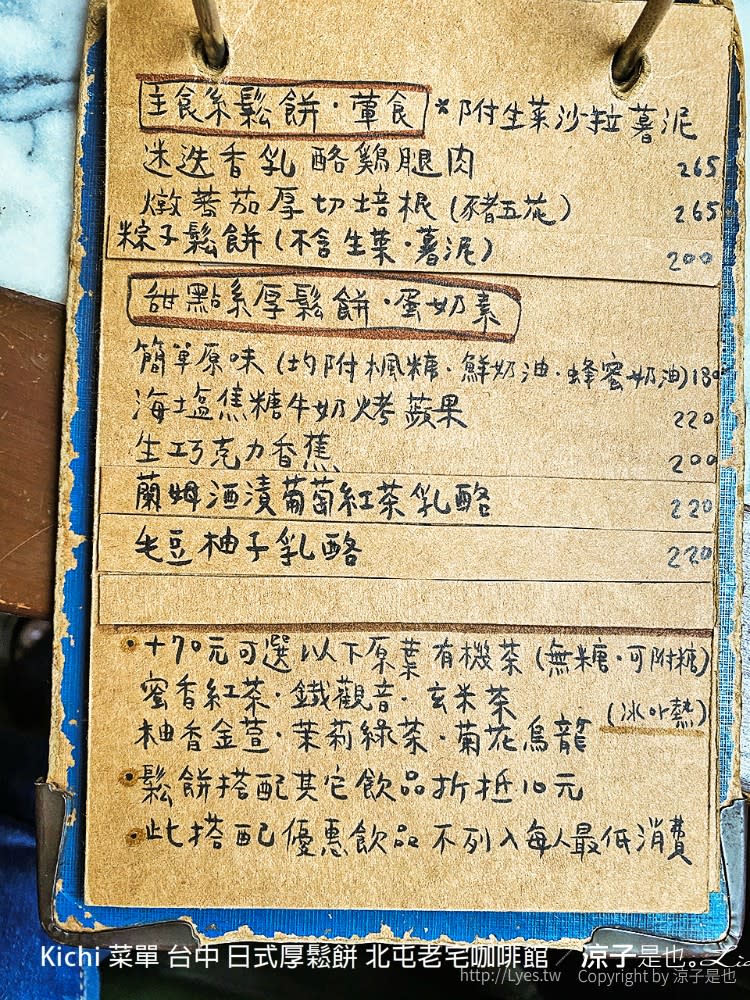 主食系鬆餅·葷食 *附生菜沙拉薯泥
迷迭香乳酪雞腿肉 265
燉蕃茄厚切培根(豬五花) 265
粽子鬆餅(不含生菜·薯泥) 200
甜點系厚鬆餅·蛋奶素
簡單原味(均附楓糖·鮮奶油·蜂蜜奶油)180
海塩焦糖牛奶烤蘋果 220
生巧克力香蕉 200
蘭姆酒漬葡萄紅茶乳酪 220
毛豆柚子乳酪 220
·+70元可選以下原葉有機茶(無糖·可附糖)
蜜香紅茶·鐵觀音·玄米茶
(冰or熱)
柚香金萱·茉莉綠茶·菊花烏龍
·鬆餅搭配其它飲品折抵10元
·此搭配優惠飲品不列入每人最低消費
Kichi 菜單 台中 日式厚鬆餅 北屯老宅咖啡館 / 涼子是也。
http://Lyes.tw Copyright by 涼子是也